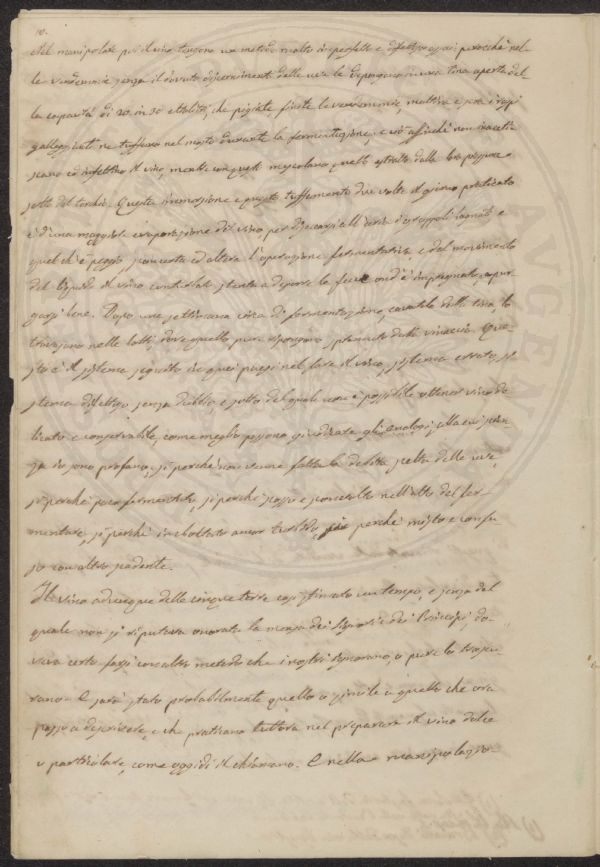 10.
Nel manipolare poi il vino tengono un metodo molto imperfetto e difettoso assai: perocchè nel-
le vendemmie senza il dovuto discernimento delle uve le depongono in una tina aperta del
la capacità di 20. in 30 ettolitri, che pigiate finite le vendemmie, mattina e sera i raspi
galleggianti ne tuffano nel mosto durante la fermentazione, e ciò affinchè non inacetis
scano ed infettino il vino, mentre con questi mescolano quello estratto dalla loro pressione
sotto del torchio. Questa immersione e questo tuffamento due volte il giorno praticato
è d'una maggiore evaporazione del vino, per disseccarsi all'aria i grappoli bagnati e
quel ch'è peggio, sconcerta ed altera l'operazione fermentativa e dal movimento
del liquido il vino conturbato stenta a deporre le fecce ond'è impregnato, a pur
garsi bene. Dopo una settimana circa di fermentazione, cavatolo dalla tina, lo
travasano nelle botti, dove quello pure ripongono spremuto dalla vinaccia. Que-
sto è il sistema seguito in quei paesi nel fare il vino, sistema errato, si
stema difettoso senza dubbio e sotto del quale non è possibile ottener vino de
licato e conservabile, come meglio possono giudicare gli enologi, alla cui scien
za io sono profano, sì perchè non venne fatta la debita scelta delle uve,
sì perchè poco fermentato, sì perchè scosso e sconvolto nell'atto del fer
mentare, sì perchè imbottato ancor torbido, perchè misto e confu
so con altro scadente.
Il vino adunque delle cinque terre così stimato un tempo, e senza del
quale non si riputava onorata la mensa dei Signori e dei Principi, do-
veva certo farsi con altro metodo che i nostri ignorano, o pure lo trascu-
rano. E sarà stato probabilmente quello o simile a quello che ora
passo a descrivere, e che praticano tuttora nel preparare il vino dolce
o particolare, come oggidì il chiamano. E nella manipolazio-